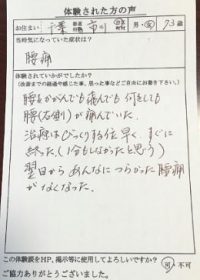 体験された方の声
お住まい 千葉 都道府県 市川 市区町村 男・女 73歳
当時気になっていた症状は？
腰痛
体験されていかがでしたか？
（改善までの経過や感じた事、思った事などご自由にお書き下さい。）
腰をかがんでも痛んでも何をしても
腰（右側）が痛んでいた。
治療はびっくりする位早く、すぐに
終った（1分もしなかったと思う）
翌日からあんなにつらかった腰痛
がなくなった。
この体験談をHP、掲示等に使用してよろしいですか？
可・不可
ご協力ありがとうございました。